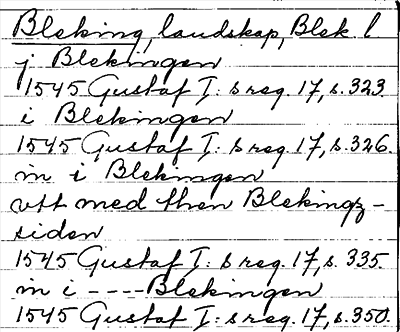 Bleking, landskap, Blek. l
j Blekingen
1545 Gustaf I: s reg. 17, s. 323.
i Blekingen
1545 Gustaf I: s reg. 17, s. 326.
in i Blekingen
vtt med then Blekingz-
siden
1545 Gustaf I: s reg. 17, s. 335.
in i ---- Blekingen
1545 Gustaf I: s reg. 17, s. 350.